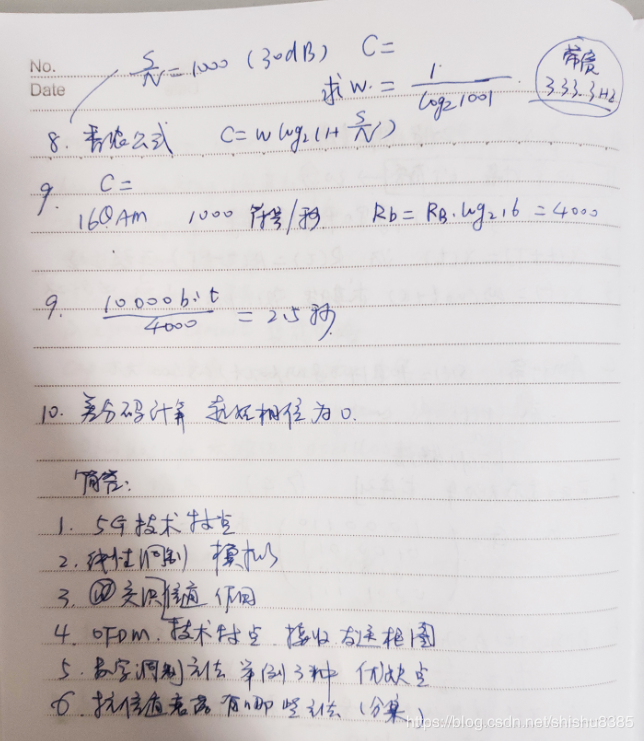 No.
Date
S/N = 1000 (30dB) C=
求W. = 1 / log₂1001
带宽
333.3Hz
8. 香农公式 C=W log₂(1+ S/N)
9. C=
16QAm 1000 符号/秒. Rb = RB.log₂16 = 4000
9. 10000bit / 4000 = 2.5秒
10. 差分码计算 起始相位为0.
简答:
1. 5G技术特点
2. 线性调制 模拟
3. 交织 信道 作用
4. OFDM. 技术特点. 接收发送框图
5. 数字调制方法 举例3种 优缺点
6. 抗信道衰落有哪些方法 (分集)
https://blog.csdn.net/shishu8385